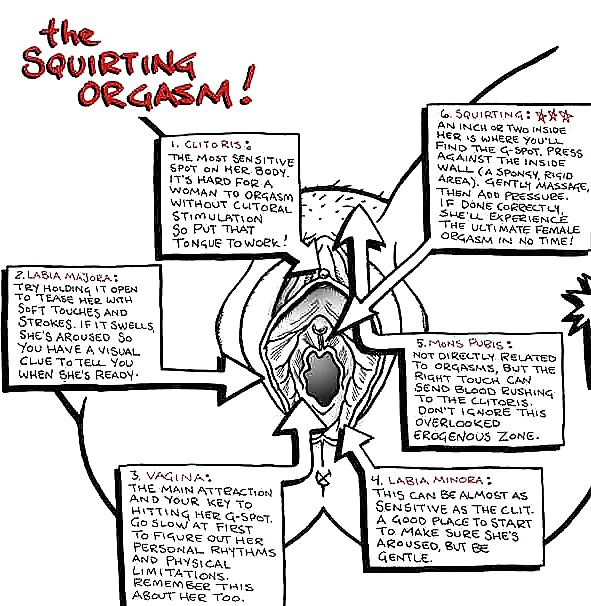 the
SQUIRTING
ORGASM!
1. CLITORIS:
THE MOST SENSITIVE
SPOT ON HER BODY.
IT'S HARD FOR A
WOMAN TO ORGASM
WITHOUT CLITORAL
STIMULATION
SO PUT THAT
TONGUE TO WORK!
6. SQUIRTING: ☆☆☆
AN INCH OR TWO INSIDE
HER IS WHERE YOU'LL
FIND THE G-SPOT. PRESS
AGAINST THE INSIDE
WALL (A SPONGY, RIGID
AREA). GENTLY MASSAGE,
THEN ADD PRESSURE.
IF DONE CORRECTLY,
SHE'LL EXPERIENCE
THE ULTIMATE FEMALE
ORGASM IN NO TIME!
2. LABIA MAJORA:
TRY HOLDING IT OPEN
TO TEASE HER WITH
SOFT TOUCHES AND
STROKES. IF IT SWELLS,
SHE'S AROUSED SO
YOU HAVE A VISUAL
CLUE TO TELL YOU
WHEN SHE'S READY.
5. MONS PUBIS:
NOT DIRECTLY RELATED
TO ORGASMS, BUT THE
RIGHT TOUCH CAN
SEND BLOOD RUSHING
TO THE CLITORIS.
DON'T IGNORE THIS
OVERLOOKED
EROGENOUS ZONE.
3. VAGINA:
THE MAIN ATTRACTION
AND YOUR KEY TO
HITTING HER G-SPOT.
GO SLOW AT FIRST
TO FIGURE OUT HER
PERSONAL RHYTHMS
AND PHYSICAL
LIMITATIONS.
REMEMBER THIS
ABOUT HER TOO.
4. LABIA MINORA:
THIS CAN BE ALMOST AS
SENSITIVE AS THE CLIT.
A GOOD PLACE TO START
TO MAKE SURE SHE'S
AROUSED, BUT BE
GENTLE.